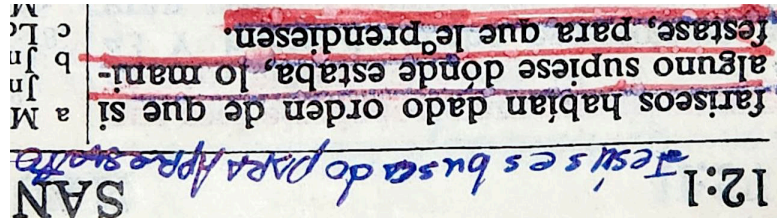 12:1 SAN
Jesús es buscado PARA APRESARLO
fariseos habían dado orden de que si
alguno supiese dónde estaba, lo mani-
festase, para que le prendiesen.
a M
Jn
b Jn
c Lc